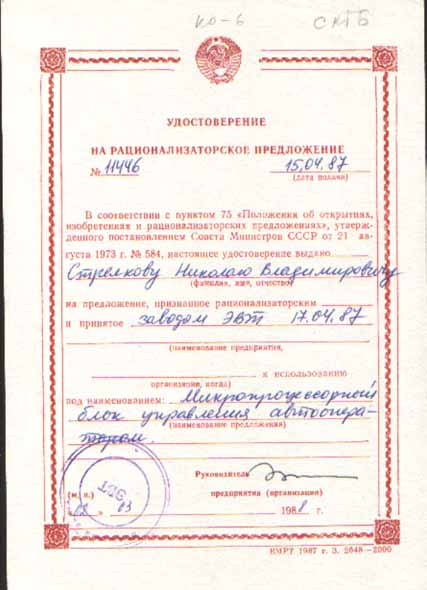 КО-6 СКТБ
УДОСТОВЕРЕНИЕ
НА РАЦИОНАЛИЗАТОРСКОЕ ПРЕДЛОЖЕНИЕ
№ 11446 15,04,87
(дата подачи)
В соответствии с пунктом 75 «Положения об открытиях,
изобретениях и рационализаторских предложениях», утверж-
денного постановлением Совета Министров СССР от 21 ав-
густа 1973 г. № 584, настоящее удостоверение выдано
Стрелкову Николаю Владимировичу
(фамилия, имя, отчество)
на предложение, признанное рационализаторским
и принятое заводом ЭВТ 17.04.87
(наименование предприятия,
к использованию
организации, когда)
под наименованием: Микропроцессорный
блок управления автоопера-
(наименование предложения)
тором.
Руководитель
(м. п.) предприятия (организации)
03 1988 г.
КМРТ 1987 г. З. 2648—2000